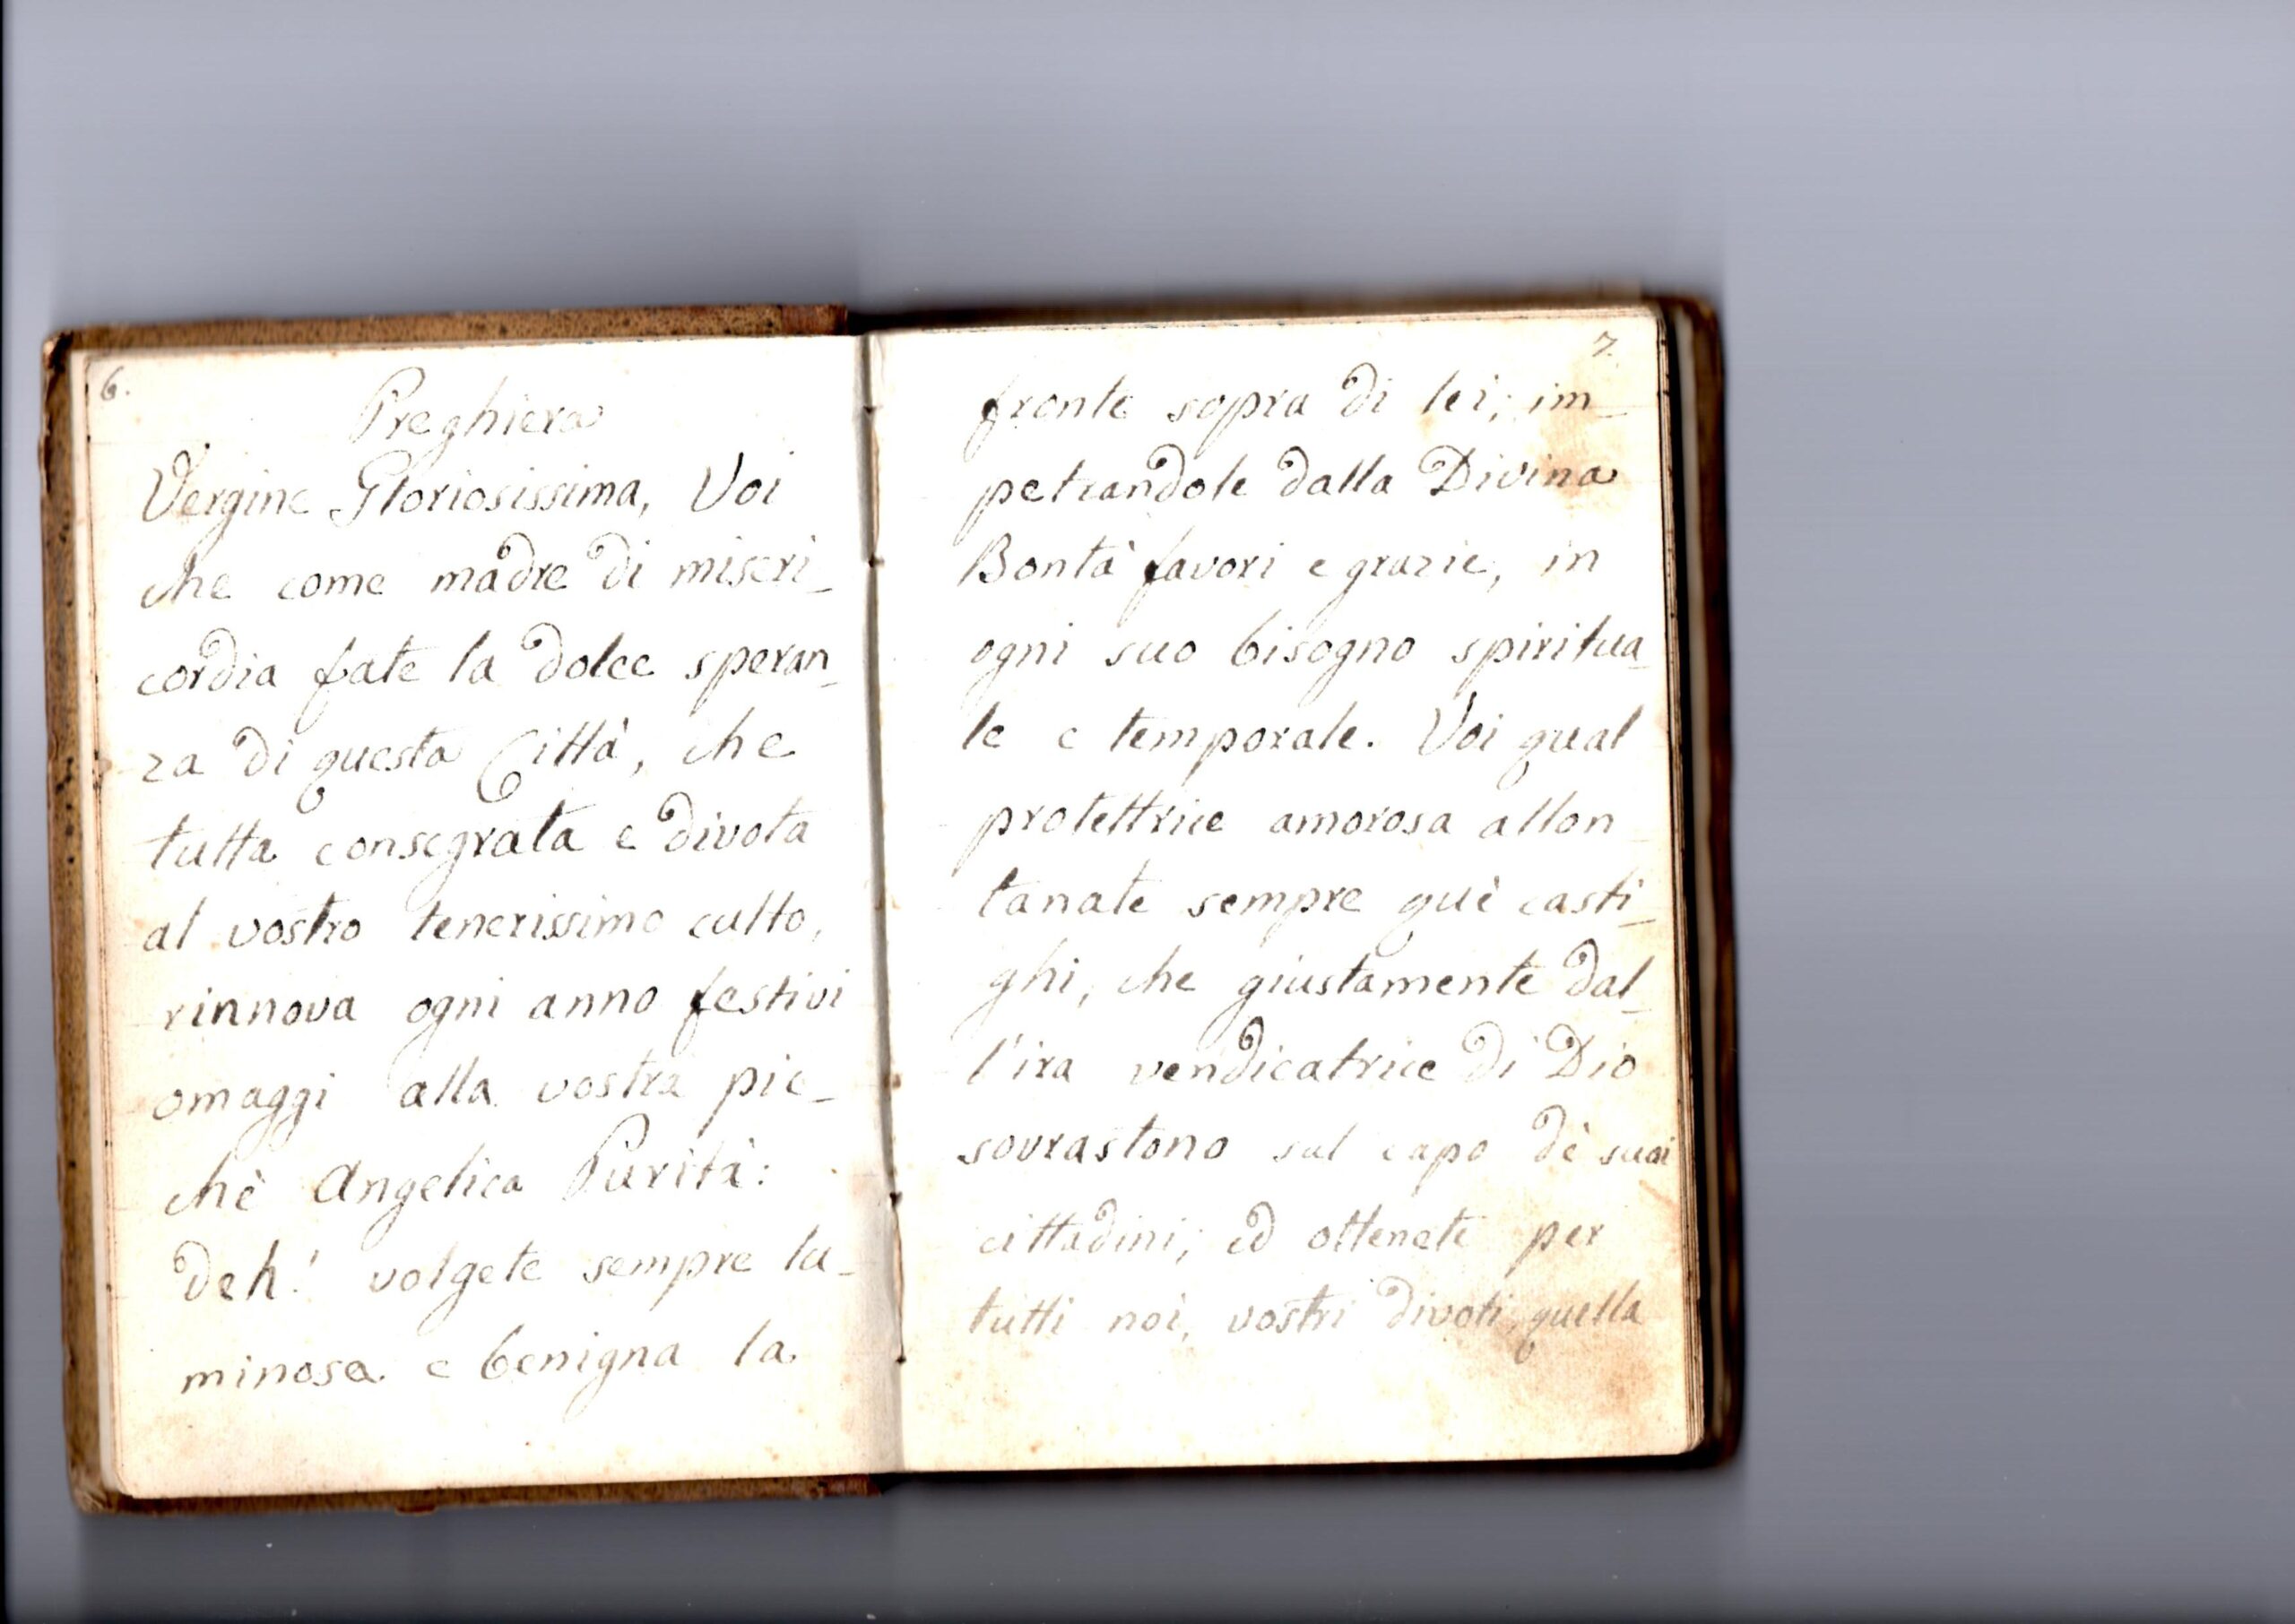 6.
Preghiera
Vergine Gloriosissima, Voi
che come madre di miseri_
cordia fate la dolce speran_
za di questa Città, che
tutta consegrata e divota
al vostro tenerissimo culto,
rinnova ogni anno festivi
omaggi alla vostra pic_
chè Angelica Purità:
deh! volgete sempre lu_
minosa e benigna la
7.
fronte sopra di lei; im_
petrandole dalla Divina
Bontà favori e grazie, in
ogni suo bisogno spiritua_
le e temporale. Voi qual
protettrice amorosa allon_
tanate sempre què casti_
ghi, che giustamente dal_
l'ira vendicatrice di Dio
sovrastono sul capo dè suoi
cittadini; ed ottenete per
tutti noi, vostri divoti, quella